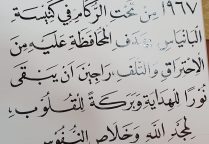 ١٩٦٧ مِنْ تَحْتِ الرُّكَامِ فِي كَنِيسَةِ
البَانْيَاسِ بِهَدَفِ المُحَافَظَةِ عَلَيْهِ مِنَ
الِاحْتِرَاقِ وَالتَّلَفِ، رَاجِينَ أَنْ يَبْقَى
نُورًا لِلْهِدَايَةِ وَبَرَكَةً لِلْقُلُوبِ،
لِمَجْدِ اللهِ وَخَلَاصِ النُّفُوسِ